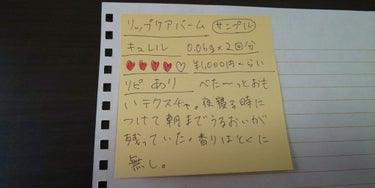 リップケアバーム サンプル
キュレル 0.06g×2回分
♥♥♥♥♡ ¥1,000円くらい
リピ あり べた〜っとおも
いテクスチャ。夜寝る時に
つけて朝までうるおいが
残っていた。香りはとくに
無し。